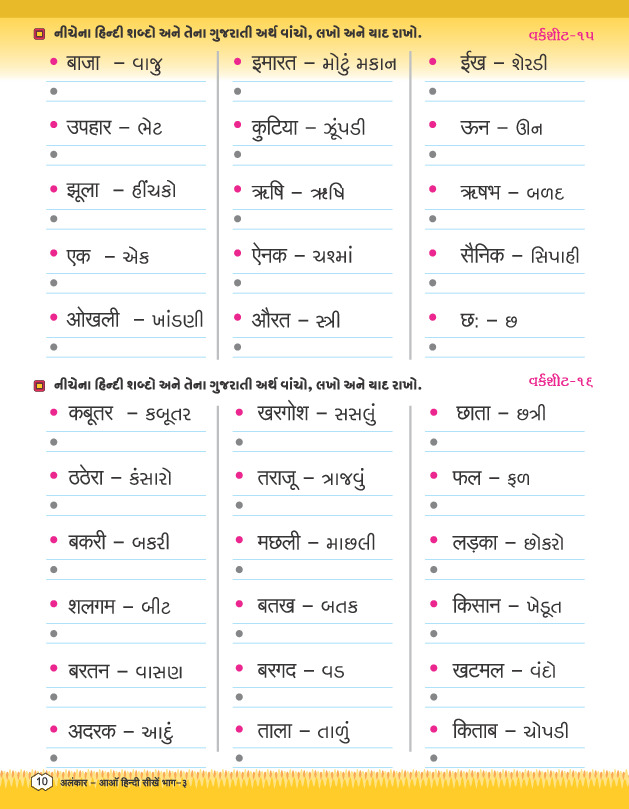 નીચેના હિન્દી શબ્દો અને તેના ગુજરાતી અર્થ વાંચો, લખો અને યાદ રાખો. વર્કશીટ-૧૫
बाजा – વાજુ इमारत – મોટું મકાન ईख – શેરડી
उपहार – ભેટ कुटिया – ઝૂંપડી ऊन – ઊન
झूला – હીંચકો ऋषि – ઋષિ ऋषभ – બળદ
एक – એક ऐनक – ચશ્માં सैनिक – સિપાહી
ओखली – ખાંડણી औरत – સ્ત્રી छः – છ
નીચેના હિન્દી શબ્દો અને તેના ગુજરાતી અર્થ વાંચો, લખો અને યાદ રાખો. વર્કશીટ-૧૬
कबूतर – કબૂતર खरगोश – સસલું छाता – છત્રી
ठठेरा – કંસારો तराजू – ત્રાજવું फल – ફળ
बकरी – બકરી मछली – માછલી लड़का – છોકરો
शलगम – બીટ बतख – બતક किसान – ખેડૂત
बरतन – વાસણ बरगद – વડ खटमल – વંદો
अदरक – આદું ताला – તાળું किताब – ચોપડી
10 अलंकार – आओ हिन्दी सीखें भाग-३